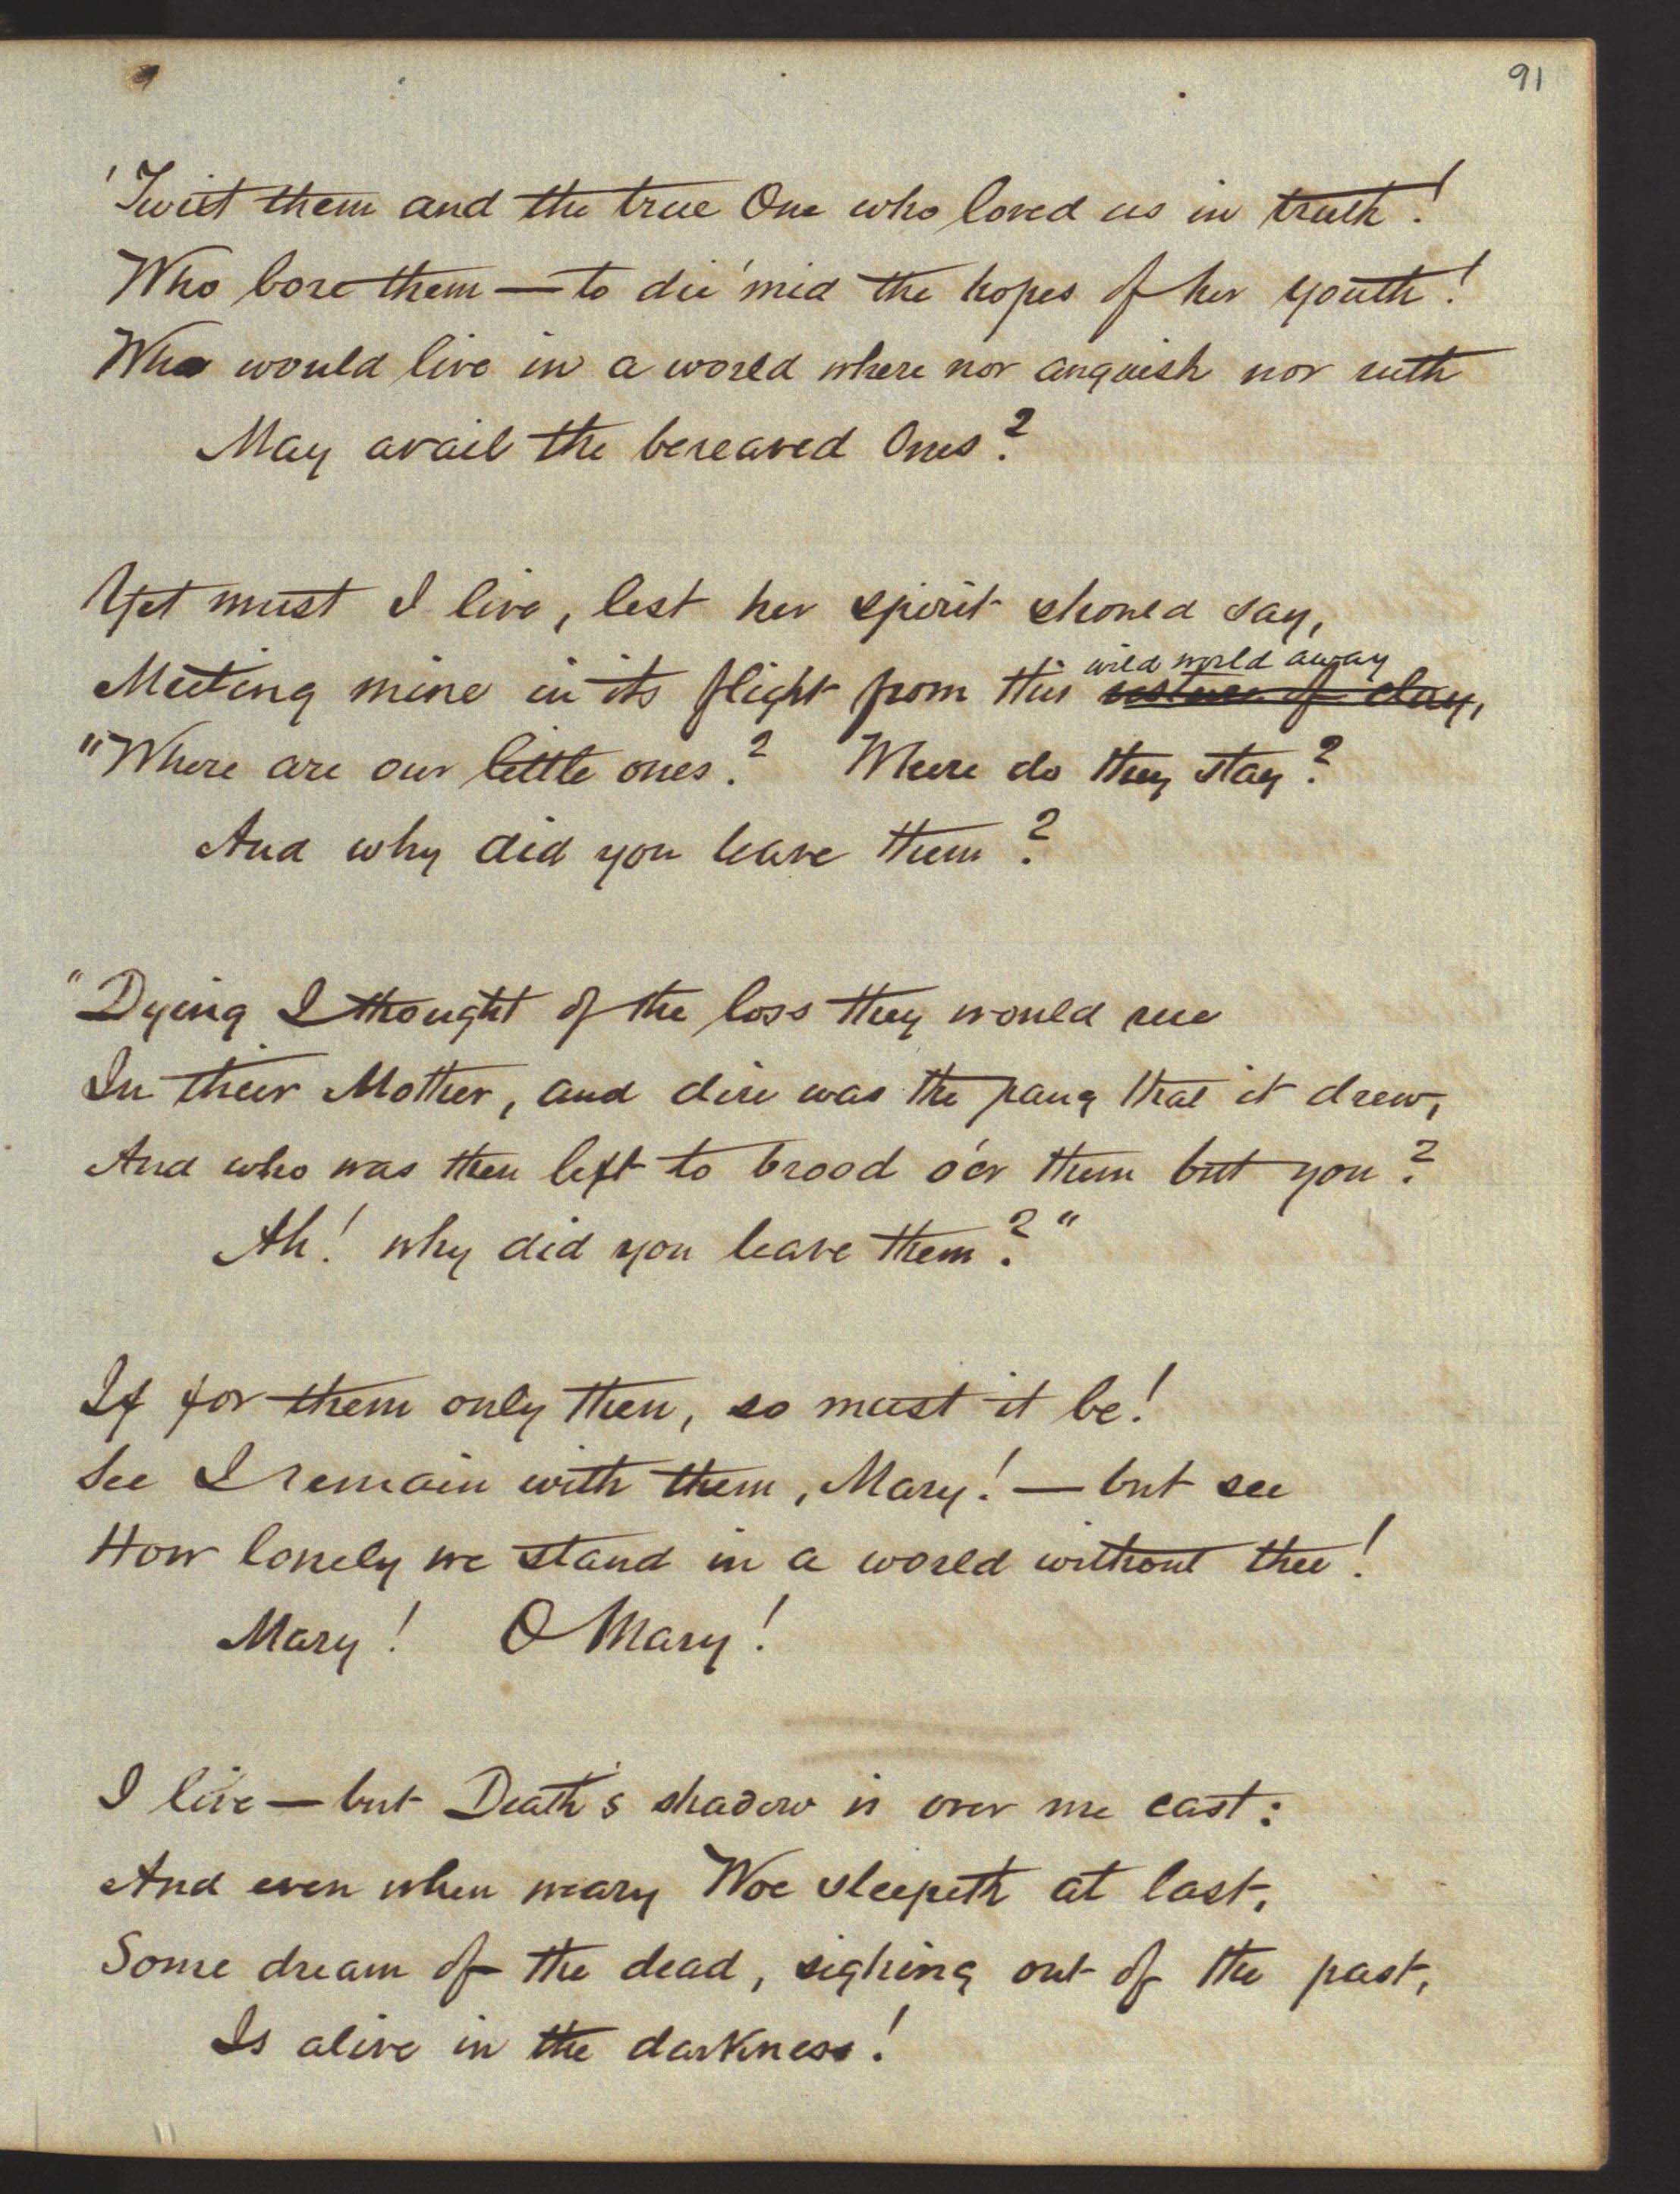 91
'Twixt them and the true One who loved us in truth!
Who bore them — to die 'mid the hopes of her youth!
Who would live in a world where nor anguish nor ruth
May avail the bereaved Ones?
Yet must I live, lest her spirit should say,
wild world away
Meeting mine in its flight from this vesture of clay,
"Where are our little ones? Where do they stay?
And why did you leave them?
"Dying I thought of the loss they would rue
In their Mother, and dire was the pang that it drew,
And who was then left to brood o'er them but you?
Ah! why did you leave them?"
If for them only then, so must it be!
See I remain with them, Mary! — but see
How lonely we stand in a world without thee!
Mary! O Mary!
I live — but Death's shadow is over me cast:
And even when weary Woe sleepeth at last,
Some dream of the dead, sighing out of the past,
Is alive in the darkness!